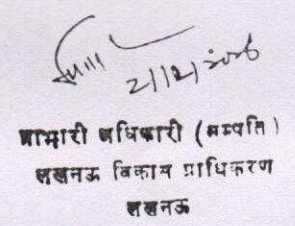 2/12/2026
प्रभारी अधिकारी (सम्पति)
लखनऊ विकास प्राधिकरण
लखनऊ